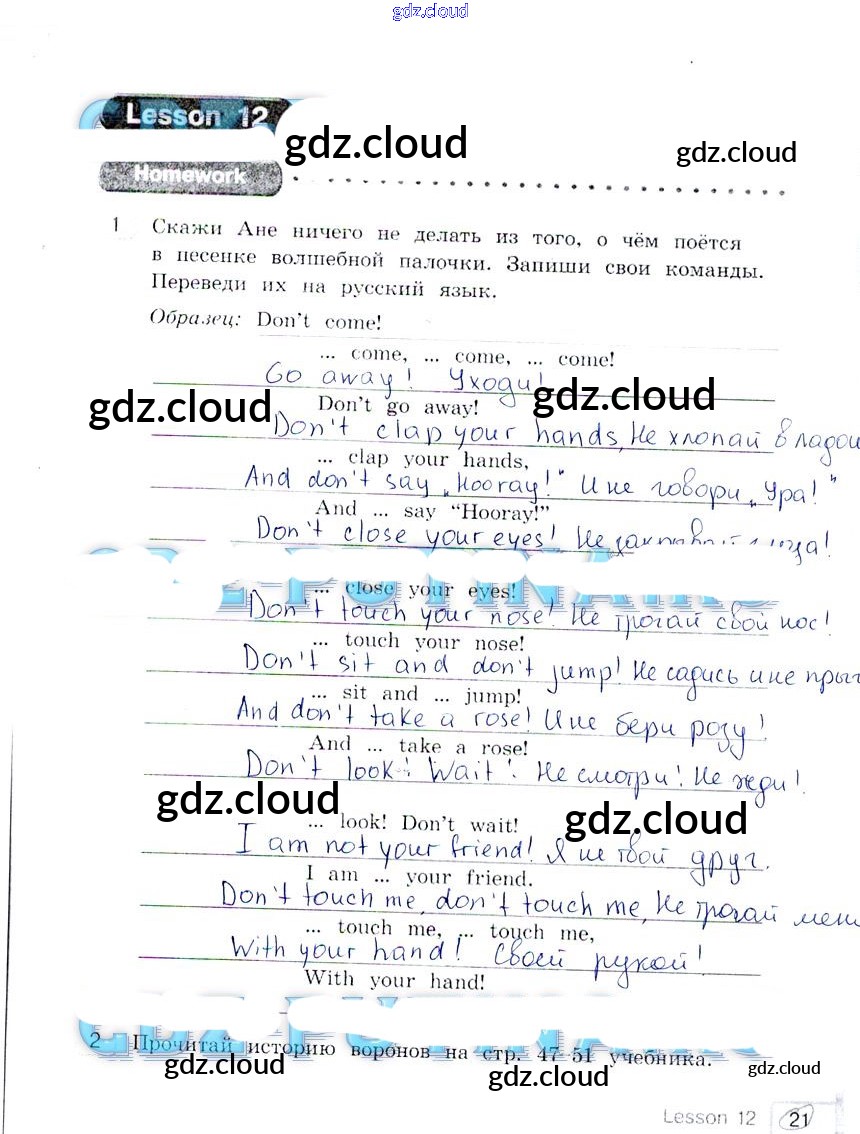 gdz.cloud
Lesson 12
gdz.cloud
gdz.cloud
Homework
1 Скажи Ане ничего не делать из того, о чём поётся
в песенке волшебной палочки. Запиши свои команды.
Переведи их на русский язык.
Образец: Don't come!
... come, ... come, ... come!
Go away! Уходи!
gdz.cloud
Don't go away!
gdz.cloud
Don't clap your hands, Не хлопай в ладош
... clap your hands,
And don't say „Hooray!" И не говори „Ура!"
And ... say "Hooray!"
Don't close your eyes! Не глаза!
... close your eyes!
Don't touch your nose! Не трогай свой нос!
... touch your nose!
Don't sit and don't jump! Не садись и не прыг
... sit and ... jump!
And don't take a rose! И не бери розу!
And ... take a rose!
Don't look! Wait! Не смотри! Не жди!
gdz.cloud
gdz.cloud
... look! Don't wait!
I am not your friend! Я не твой друг.
I am ... your friend.
Don't touch me, don't touch me, Не трогай мен
... touch me, ... touch me,
With your hand! Своей рукой!
With your hand!
2 Прочитай историю воронов на стр. 47–51 учебника.
gdz.cloud
gdz.cloud
gdz.cloud
Lesson 12 21